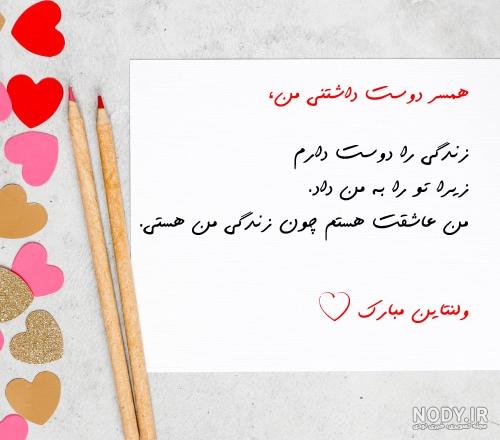 همسر دوست داشتنی من،
زندگی را دوست دارم
زیرا تو را به من داد.
من عاشقت هستم چون زندگی من هستی.
ولنتاین مبارک
NODY.IR
مجله تصویری، خبری نودی